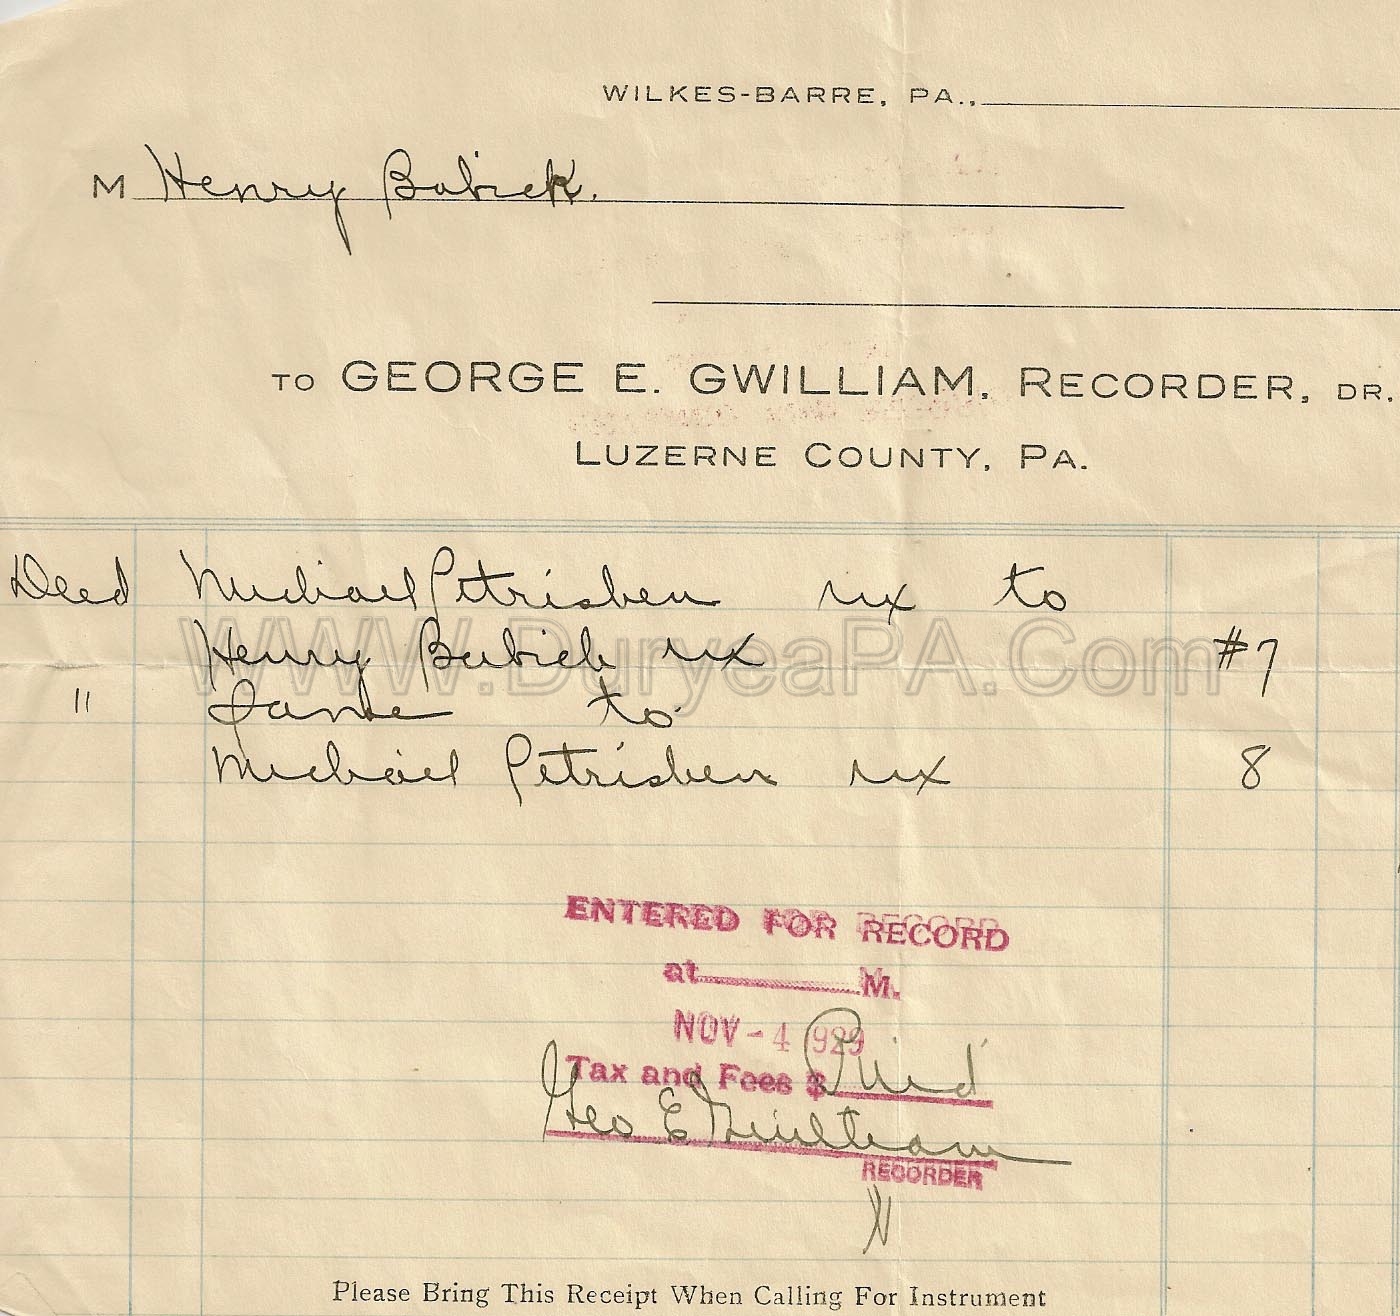 WILKES-BARRE, PA.,
M Henry Babick.
TO GEORGE E. GWILLIAM, RECORDER, DR.
LUZERNE COUNTY, PA.
Deed Michael Petrisben ux to
Henry Babick ux #7
" Same to
Michael Petrisben ux 8
WWW.DuryeaPA.Com
ENTERED FOR RECORD
at M.
NOV - 4 1929
Tax and Fees $ Paid
Geo E Gwilliam
RECORDER
Please Bring This Receipt When Calling For Instrument